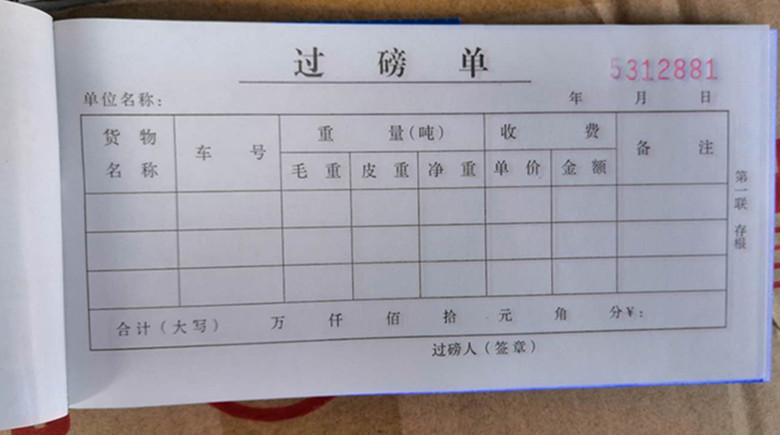 过磅单
5312881
单位名称: 年 月 日
货物名称 车号 重量(吨) 收费 备注
毛重 皮重 净重 单价 金额
合计(大写) 万 仟 佰 拾 元 角 分¥:
过磅人(签章)
第一联 存根